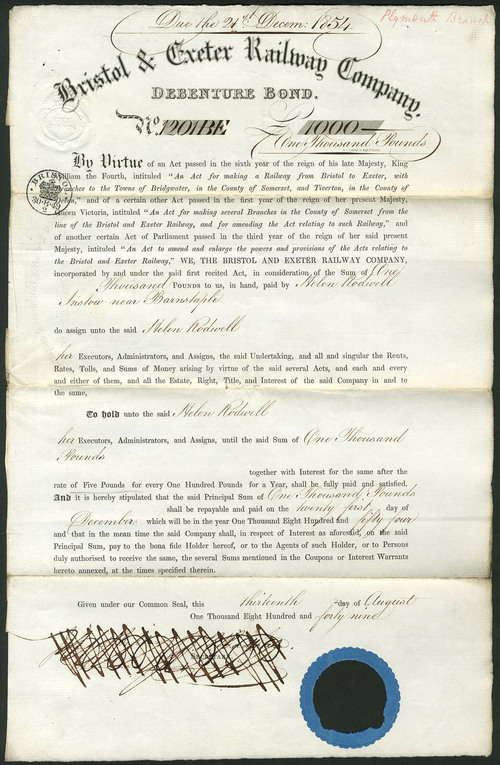 Due the 21st Decem: 1854
Plymouth Branch
Bristol & Exeter Railway Company.
DEBENTURE BOND.
No. 1201BE £ 1000
One Thousand Pounds
By Virtue of an Act passed in the sixth year of the reign of his late Majesty, King
William the Fourth, intituled "An Act for making a Railway from Bristol to Exeter, with
Branches to the Towns of Bridgwater, in the County of Somerset, and Tiverton, in the County of
Devon," and of a certain other Act passed in the first year of the reign of her present Majesty,
Queen Victoria, intituled "An Act for making several Branches in the County of Somerset from the
line of the Bristol and Exeter Railway, and for amending the Act relating to such Railway," and
of another certain Act of Parliament passed in the third year of the reign of her said present
Majesty, intituled "An Act to amend and enlarge the powers and provisions of the Acts relating to
the Bristol and Exeter Railway," WE, THE BRISTOL AND EXETER RAILWAY COMPANY,
incorporated by and under the said first recited Act, in consideration of the Sum of One
Thousand POUNDS to us, in hand, paid by Helen Rodwell
Instow near Barnstaple
do assign unto the said Helen Rodwell
her Executors, Administrators, and Assigns, the said Undertaking, and all and singular the Rents,
Rates, Tolls, and Sums of Money arising by virtue of the said several Acts, and each and every
and either of them, and all the Estate, Right, Title, and Interest of the said Company in and to
the same,
To hold unto the said Helen Rodwell
her Executors, Administrators, and Assigns, until the said Sum of One Thousand
Pounds
together with Interest for the same after the
rate of Five Pounds for every One Hundred Pounds for a Year, shall be fully paid and satisfied.
And it is hereby stipulated that the said Principal Sum of One Thousand Pounds
shall be repayable and paid on the twenty first day of
December which will be in the year One Thousand Eight Hundred and fifty four
and that in the mean time the said Company shall, in respect of Interest as aforesaid, on the said
Principal Sum, pay to the bona fide Holder hereof, or to the Agents of such Holder, or to Persons
duly authorised to receive the same, the several Sums mentioned in the Coupons or Interest Warrants
hereto annexed, at the times specified therein.
Given under our Common Seal, this thirteenth day of August
One Thousand Eight Hundred and forty nine
BRISTOL